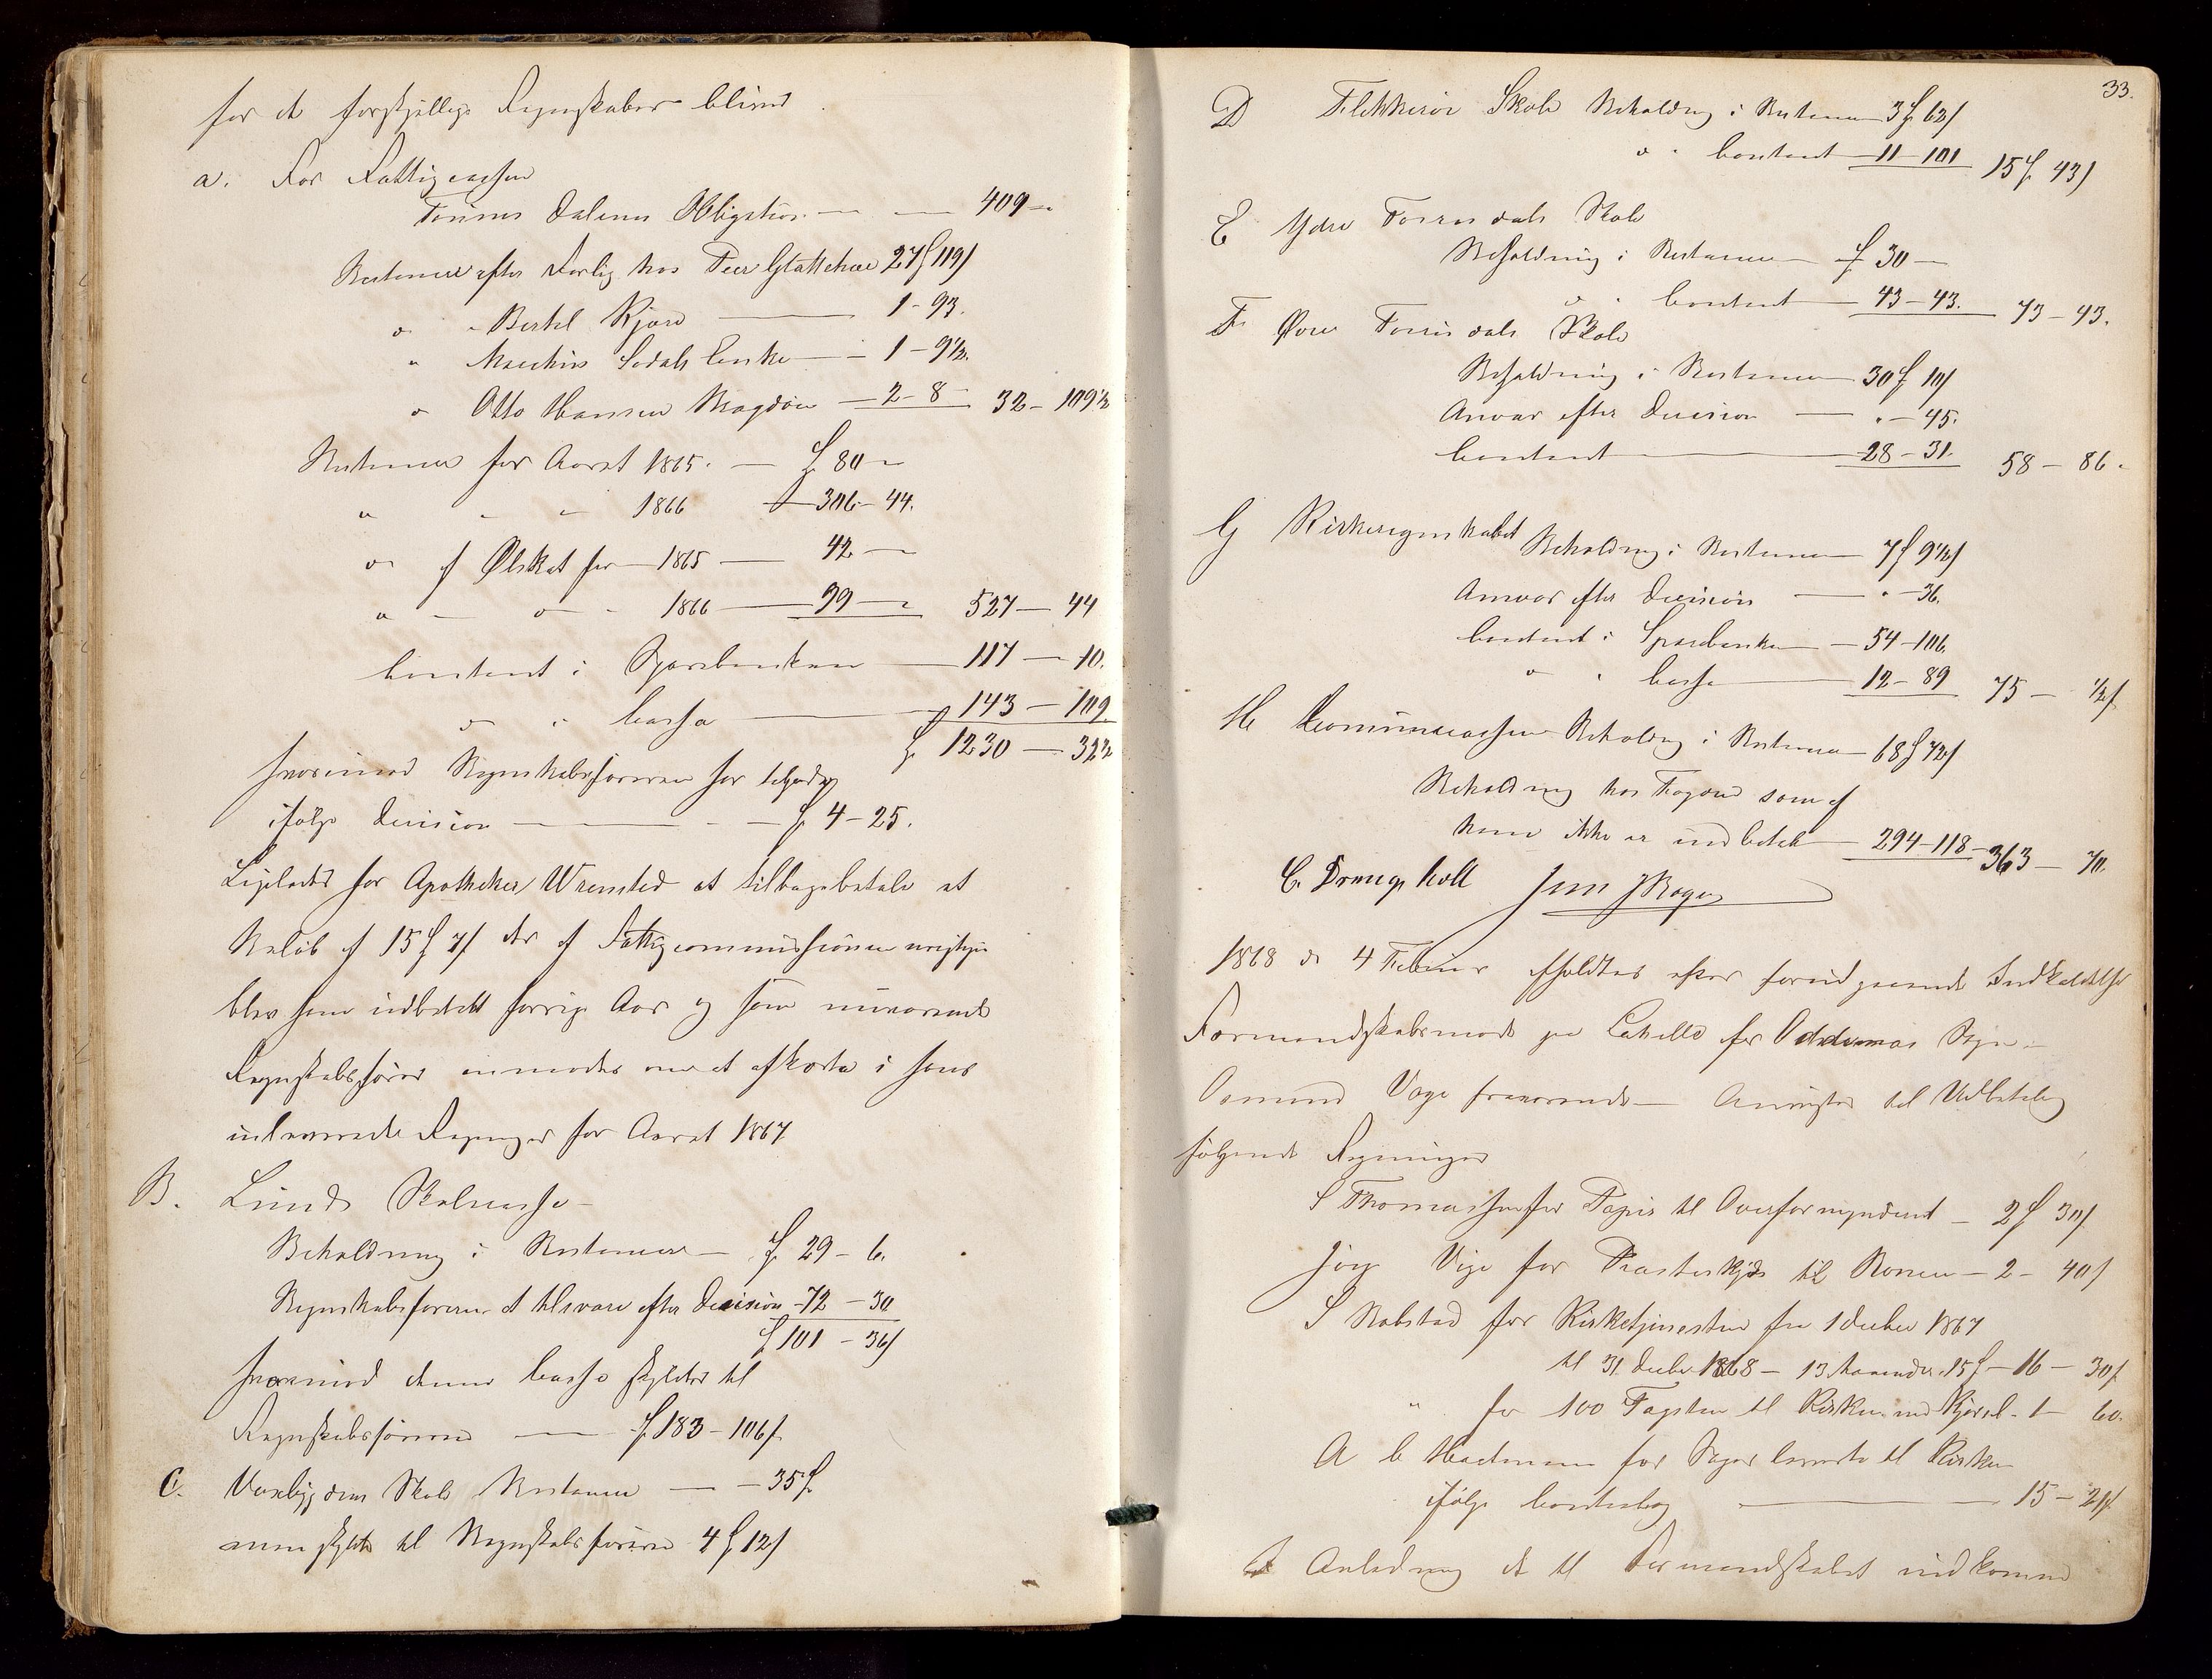 for de forskjellige Regnskaber bliver
a. For Fattigcassen
Tønnes Dalenes Obligation — — 409 —
Restancer efter Forlig hos Peer Glattetræe 27 f 119 s
" " Bertel Kjære — 1 - 93.
" Marthins Sødals Enke — 1 - 9½.
" Otto Hansen Bragdøen — 2 - 8 — 32 - 109½
Restancer for Aaret 1865. — f 80 "
" " " 1866 — 306 - 44.
" af Ølskat for — 1865 — 42 — "
" — " - 1866 — 99 — " 527 — 44
Contant i Sparebanken — 117 — 10.
" i Cassa — 143 — 109
f 1230 — 32½
hvorimod Regnskabsføreren har tilgode
ifølge Decision — — f 4 - 25.
Ligeledes har Apotheker Wrensted at tilbagebetale et
Beløb af 15 f 7 s der af Fattigcommissionen urigtigen
blev ham udbetalt forrige Aar og som nuværende
Regnskabsfører anmodes om at afkorte i hans
indleverede Regninger for Aaret 1867
B. Lunds Skolecasse —
Beholdning i Restancer — f 29 - 6.
Regnskabsføreren at tilsvare efter Decision - 72 - 30
f 101 - 36 s
hvorimod denne Casse skylder til
Regnskabsføreren — f 183 - 106 s.
C. Voxbygdens Skole Restancer — — 35 f
men skylder til Regnskabsføreren 4 f 12 s
33.
D Flekkerøe Skole Beholdning i Restancer 3 f 62 s
" " Contant — 11 - 101 15 f 43 s
E Ydre Torrisdals Skole
Beholdning i Restancer — f 30 —
" " Contant — 43 - 43. 73 - 43.
F Øvre Torrisdals Skole
Beholdning i Restancer — 30 f 10 s
Ansvar efter Decision — " - 45.
Contant — 28 - 31. 58 - 86.
G Kirkeregnskabet Beholdning i Restancer — 7 f 9½ s
Ansvar efter Decision — " - 36.
Contant i Sparebanken — 54 - 106.
" " Cassa — 12 - 89 75 — ½ s
H Communecassen Beholdning i Restancer 68 f 72 s
Beholdning hos Fogden som af
ham ikke er indbetalt — 294 - 118 - 363 - 70.
C. Drangsholt Jens J Bogen
1868 d 4 Februar afholdtes efter foregaaende Indkaldelse
Formandskabsmøde paa for Oddernæs Sogn —
Osmund Vaage fraværende — Anvistes til Udbetaling
følgende Regninger
S Thomassen for Papir til Overformynderiet — 2 f 30 s
Jørg Vige for Præsteskyds til Roneen — 2 - 40 s
S Kobstad for Kirketjenesten fra 1 December 1867
til 31 Decbr 1868 — 13 Maaneder 15 f — 16 — 30 s
" for 100 Tagsten til Kirken med Kjørsel - 1 - 60.
A C for Sager leverte til Kirken
ifølge Contrabog — — 15 - 21 s
I Anledning et til Formandskabet indkommen